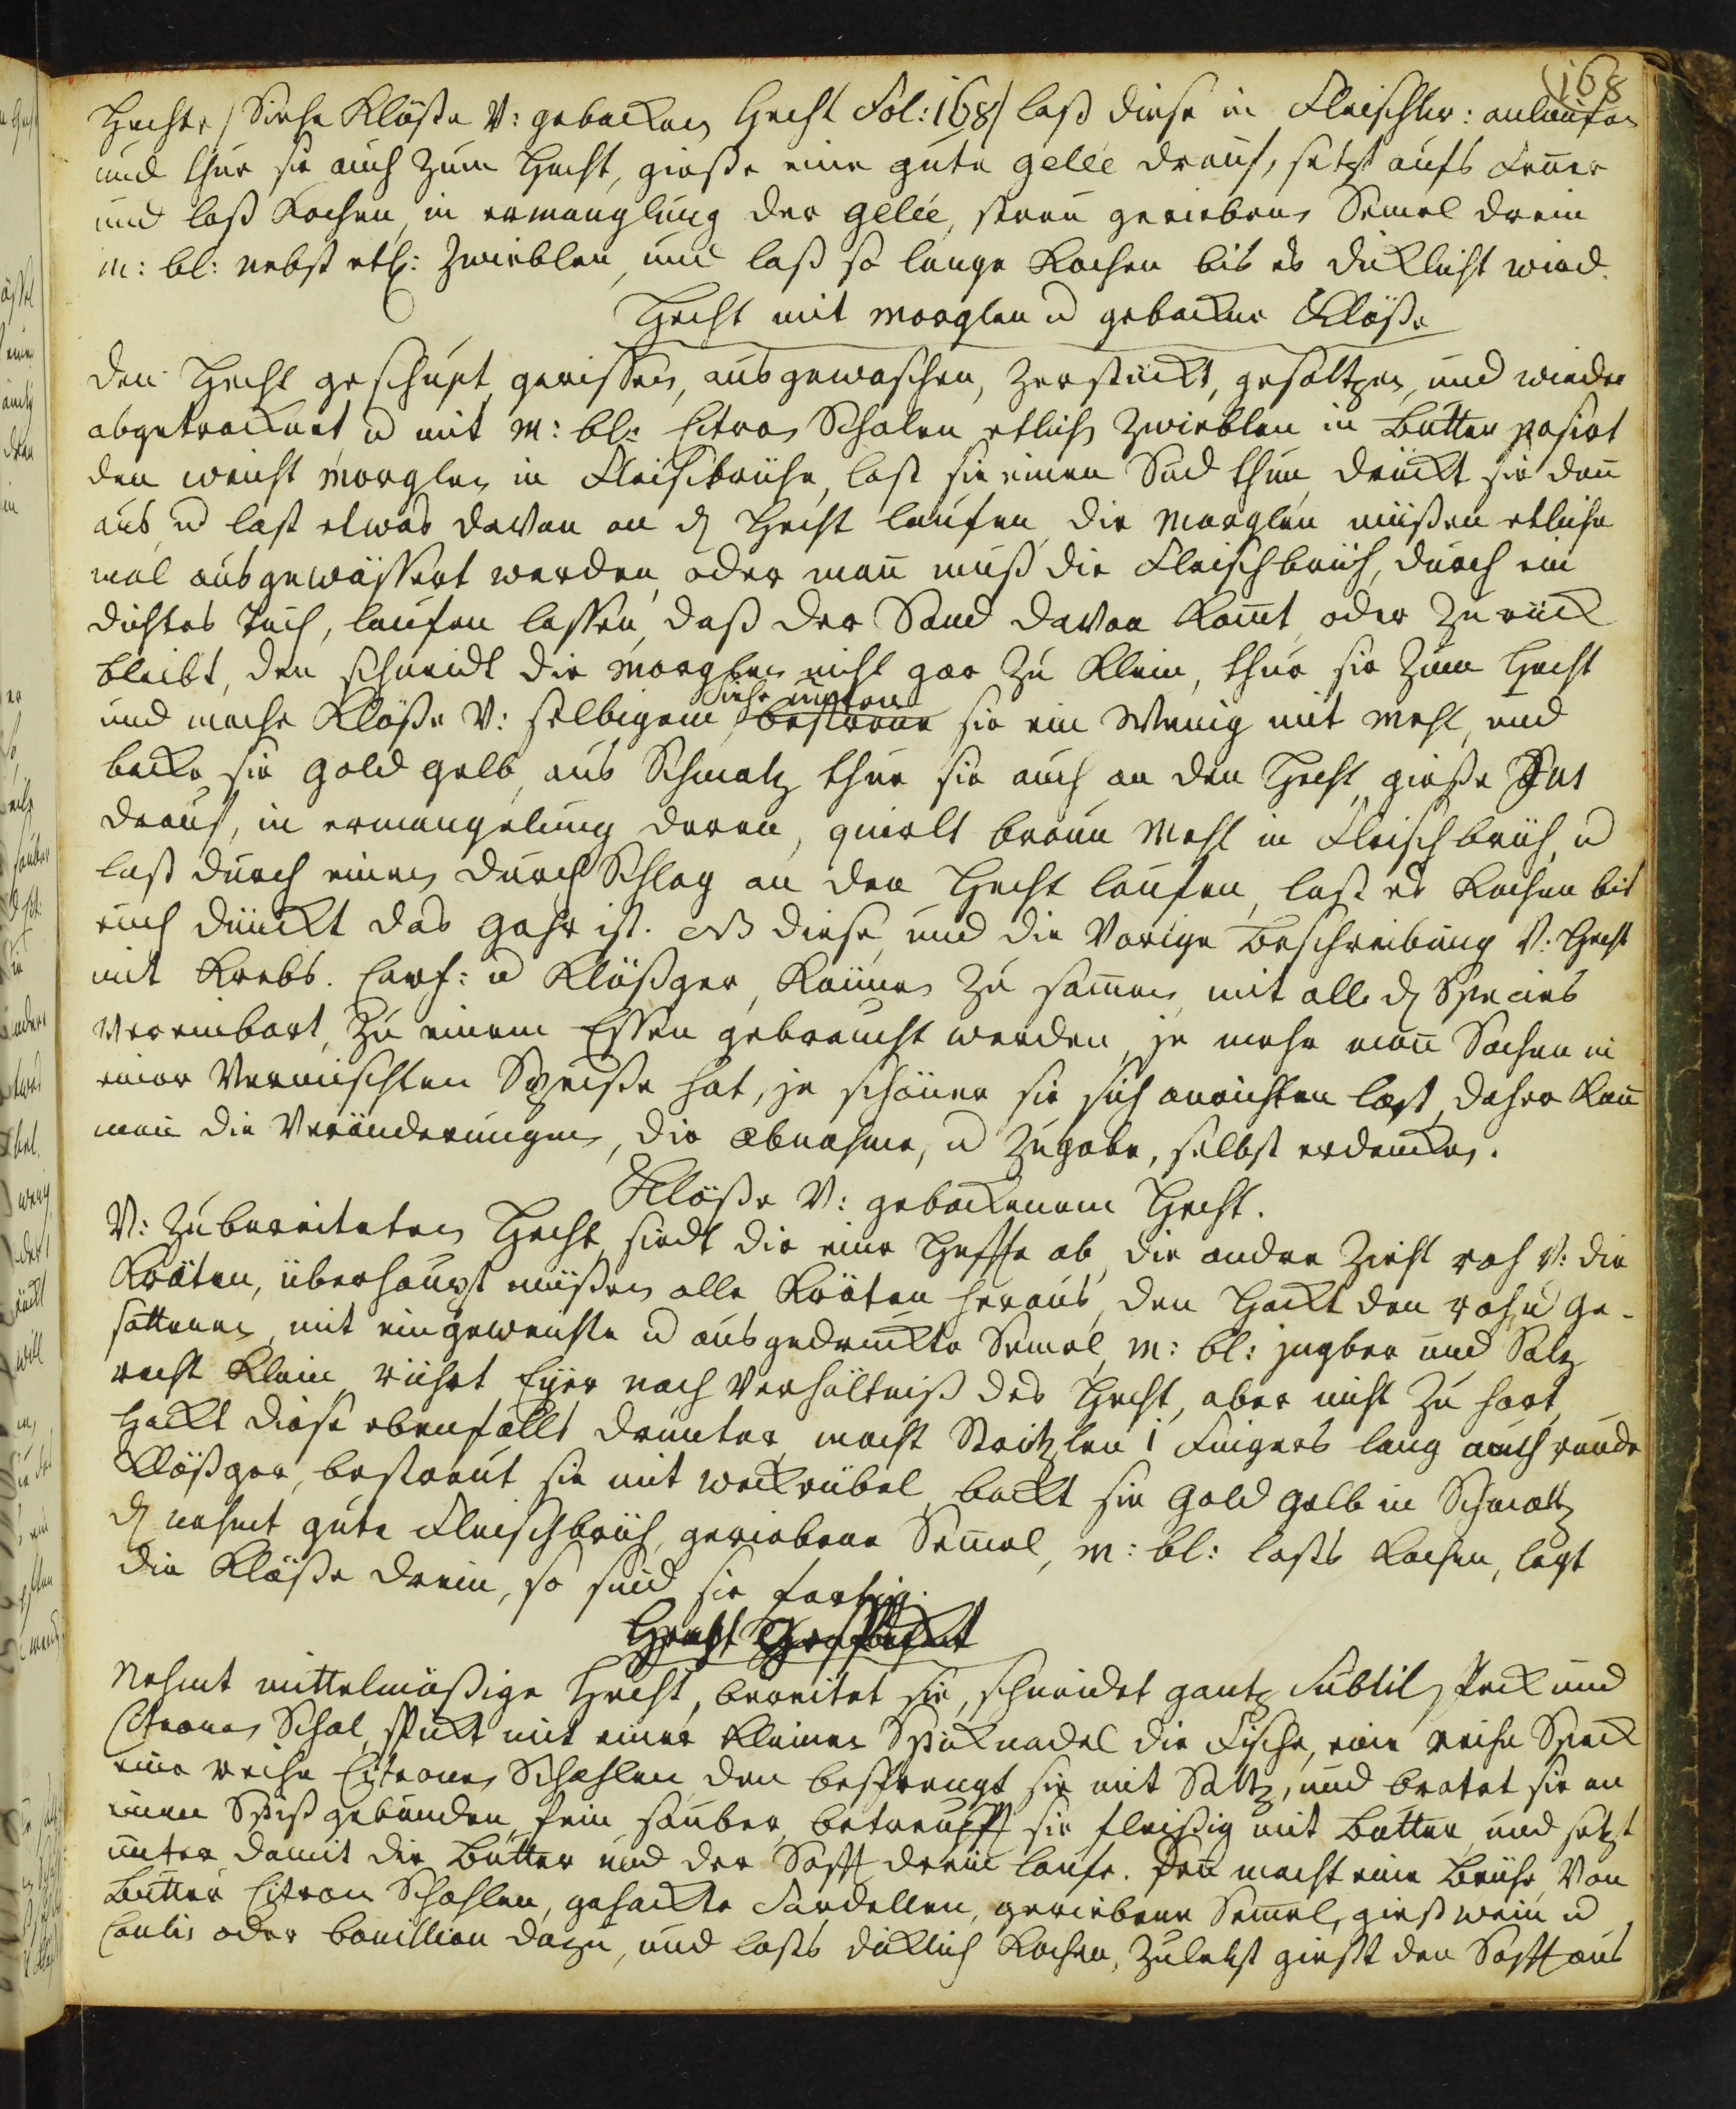 168
Hechte / Siehe Klöße V: gebacken Hecht Fol: 168 / laß diese in Fleischbr: anlaufen
und thue sie auch zum Hecht, gieße eine gute gelée drauf, setzt aufs Feuer
und laß Kochen, in ermanglung der gelée, streu gerieben Semel drein
M: bl: nebst etl: Zwieblen, und laß so lange Kochen bis es diklicht wird.
Hecht mit Morglen u gebackne Klöße
den Hecht geschupt, gerissen, ausgewaschen, zerstückt, gesaltzen, und wieder
abgetrocknet u mit M: bl: Citron Schalen etlich Zwieblen in Butter pasirt
den weicht Morglen in Fleischbrühe, last sie einen Sud thun, drückt sie dan̄
aus, u last etwas davon an d Hecht laufen, die Morglen müßen etliche
mal ausgewässert werden, oder man̄ muß die Fleischbrüh, durch ein
dichtes Tuch, laufen lassen, daß der Sand davon Kom̄t, oder zurück
bleibt, den schneidt die Morglen nicht gar zu Klein, thue sie zum Hecht
und mache Klöße V: selbigem siehe unten bestreue sie ein Wenig mit Mehl, und
backe sie gold gelb, aus Schmaltz thue sie auch an den Hecht, gieße Jus
drauf, in ermangelung deren, quirlt braun Mehl in Fleischbrüh, u
laß durch einen durch Schlag an den Hecht laufen, last es Kochen bis
euch dünckt das gahr ist. NB diese, und die Vorige Beschreibung V: Hecht
mit Krebs. Carf: u Klößger, Kön̄en zu sam̄en, mit alle d Species
vereinbart, zu einem Essen gebraucht werden, je mehr man̄ Sachen in
einer Vermischten Speiße hat, je schöner sie sich anrichten last, daher Kan̄
man die Veränderungen, die abnahme, u zugabe, selbst erdencken.
Klöße V: gebackenem Hecht.
V: zubereiteten Hecht, siedt die eine Helffte ab, die andre zieht roh V: die
Kräten, überhaupt müßen alle Kräten heraus, den Hackt den roh u ge-
sottenen, mit eingeweichte u ausgedrückte Semel, M: bl: jngber und Saltz
recht Klein, rührt Eyer nach Verhältniß des Hecht, aber nicht zu hart,
Hackt diese ebenfalls drunter, macht Stritzlen 1 Fingers lang auch runde
Klößger, bestreut sie mit weckrübel, backt sie gold gelb in Schmaltz
d nehmt gute Fleischbrüh, geriebene Sem̄el, M: bl: lasts Kochen, legt
die Klöße drein, so sind sie fertig.
Hecht Gespickt
Nehmt mittelmäßige Hecht, bereitet sie, schneidet gantz subtil Speck und
Citronen Schal, spickt mit einer Kleinen Spicknadel die Fische, eine reihe Speck
eine reihe Citronen Schahlen, den besprengt sie mit Saltz, und bratet sie an
einen Spiß gebunden, fein sauber, betreufft sie fleißig mit Butter, und setzt
unter damit die Butter und der Safft drein laufe. den̄ macht eine Brühe, Von
Butter Citron Schahlen, gehackte Sardellen, geriebene Sem̄el, gießt wein u
Coulis oder bouillion dazu, und lasts diklich Kochen, zuletzt gießt den Safft aus